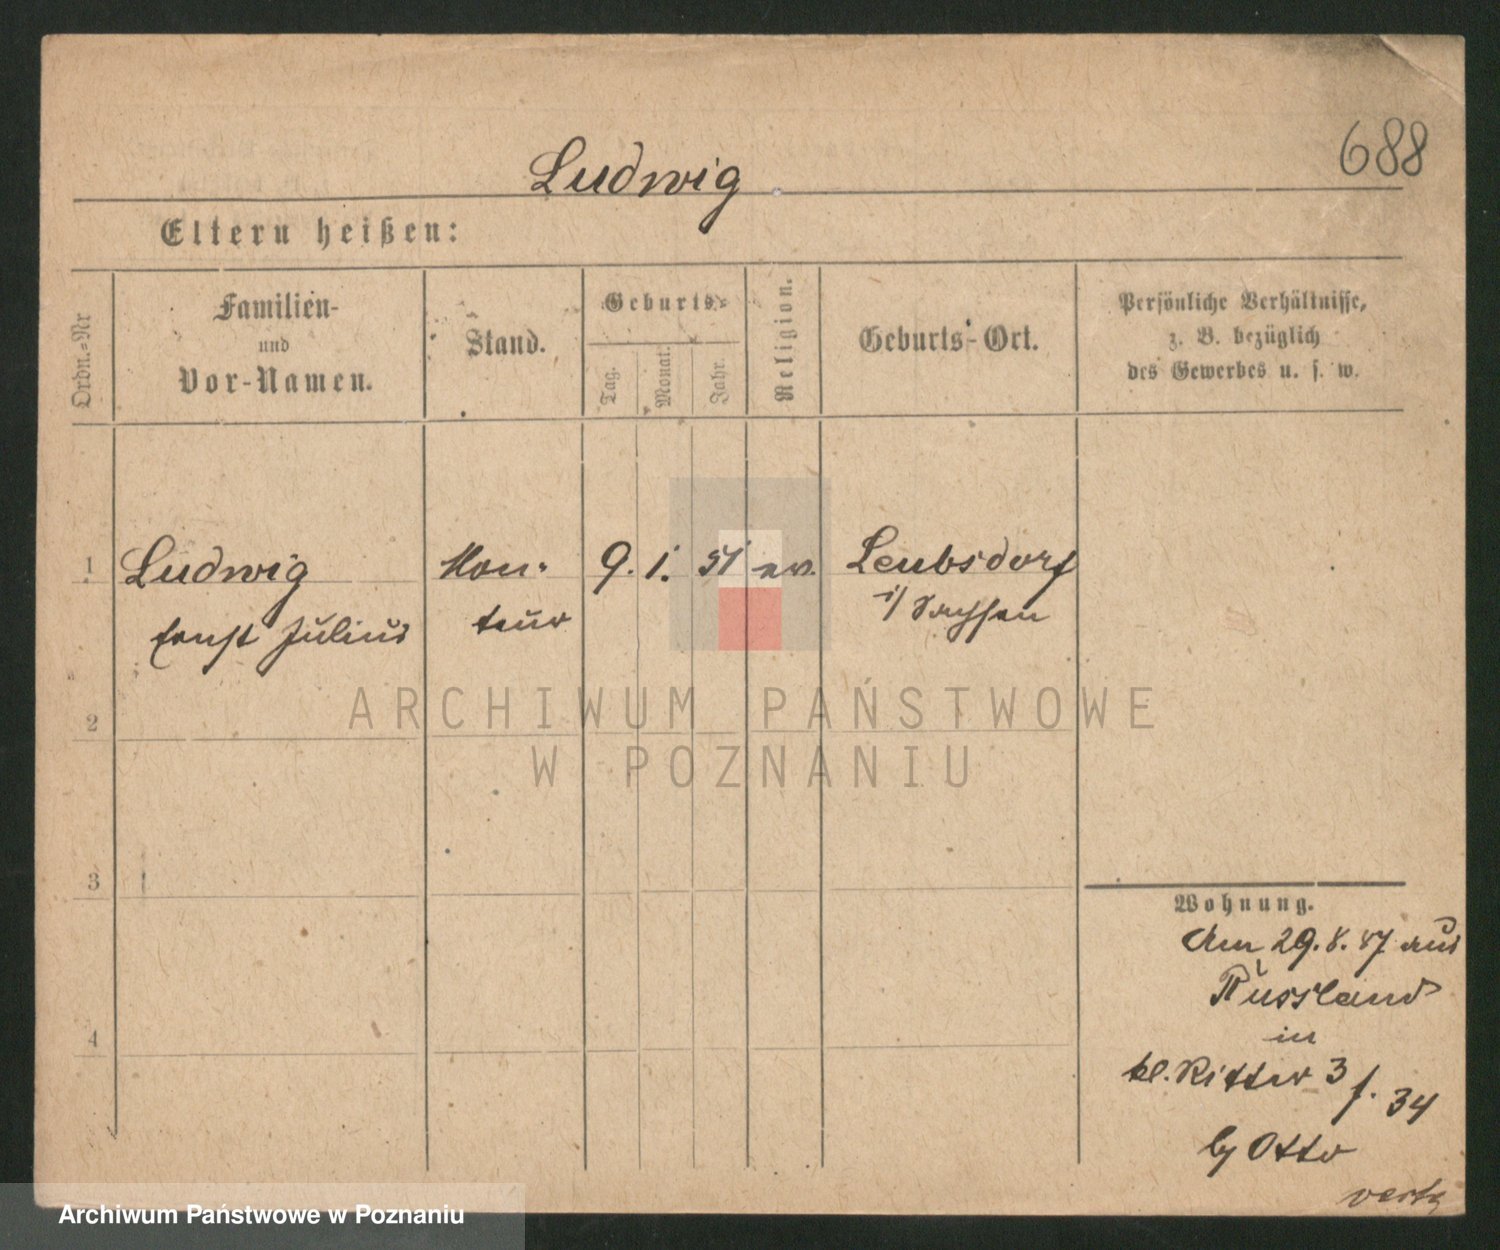 688
Ludwig
Eltern heißen:
Ordn.-Nr
Familien-
und
Vor-Namen.
Stand.
Geburts-
Tag.
Monat.
Jahr.
Religion.
Geburts-Ort.
Persönliche Verhältnisse,
z. B. bezüglich
des Gewerbes u. s. w.
1 Ludwig Mon- 9. 1. 51 ev. Leubsdorf
Ernst Julius teur i/ Sachsen
2
3
4
Wohnung.
Am 29.8.87 aus
Russland
in
kl. Ritter 3 f. 34
by Otto
ARCHIWUM PAŃSTWOWE
W POZNANIU
Archiwum Państwowe w Poznaniu